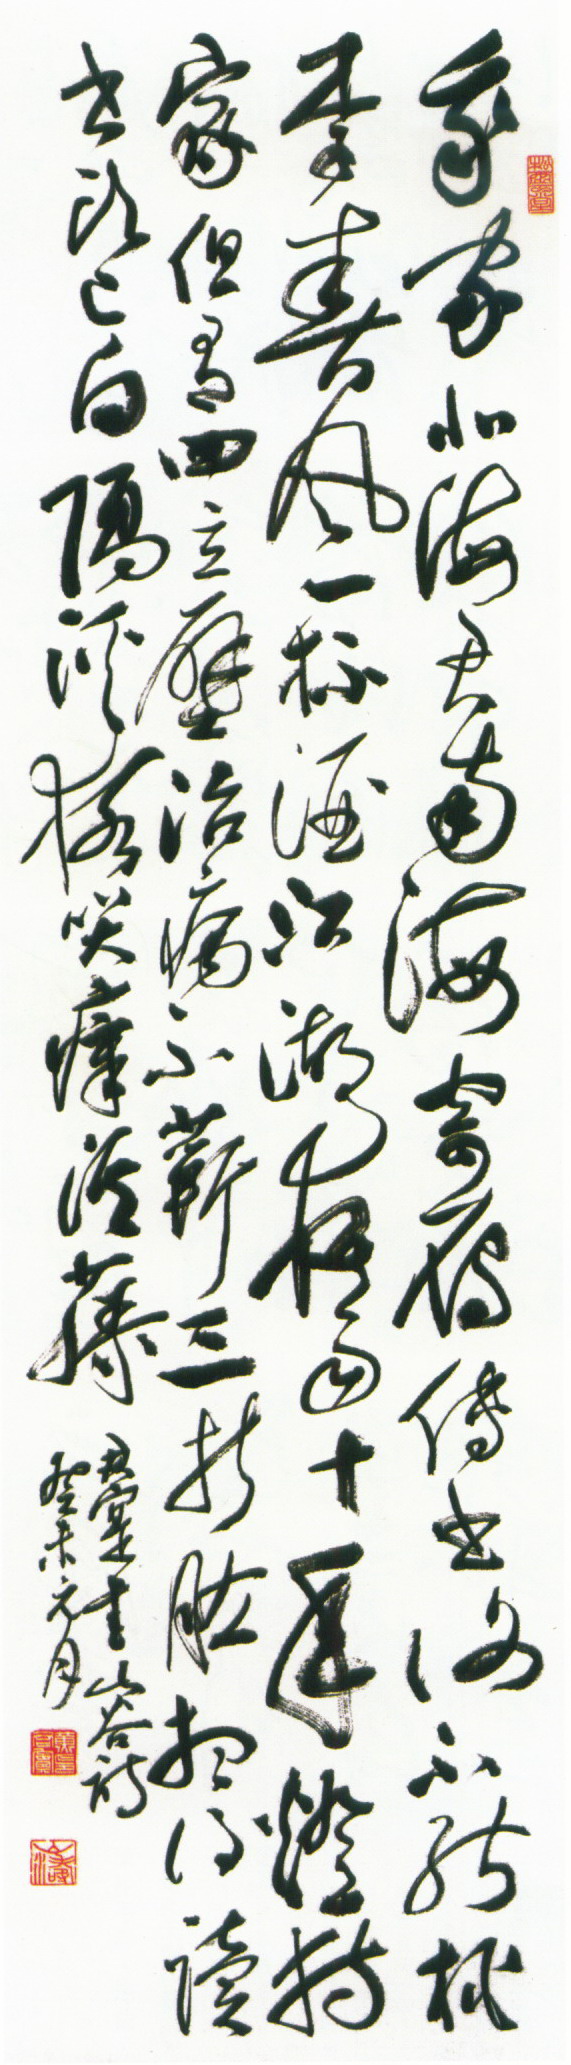 我家北海君南海寄雁傳書謝不能桃
李春風一杯酒江湖夜雨十年燈持
家但有四立壁治病不蘄三折肱想得讀
書頭已白隔溪猿哭瘴溪藤
君寔書山谷詩
癸未元月